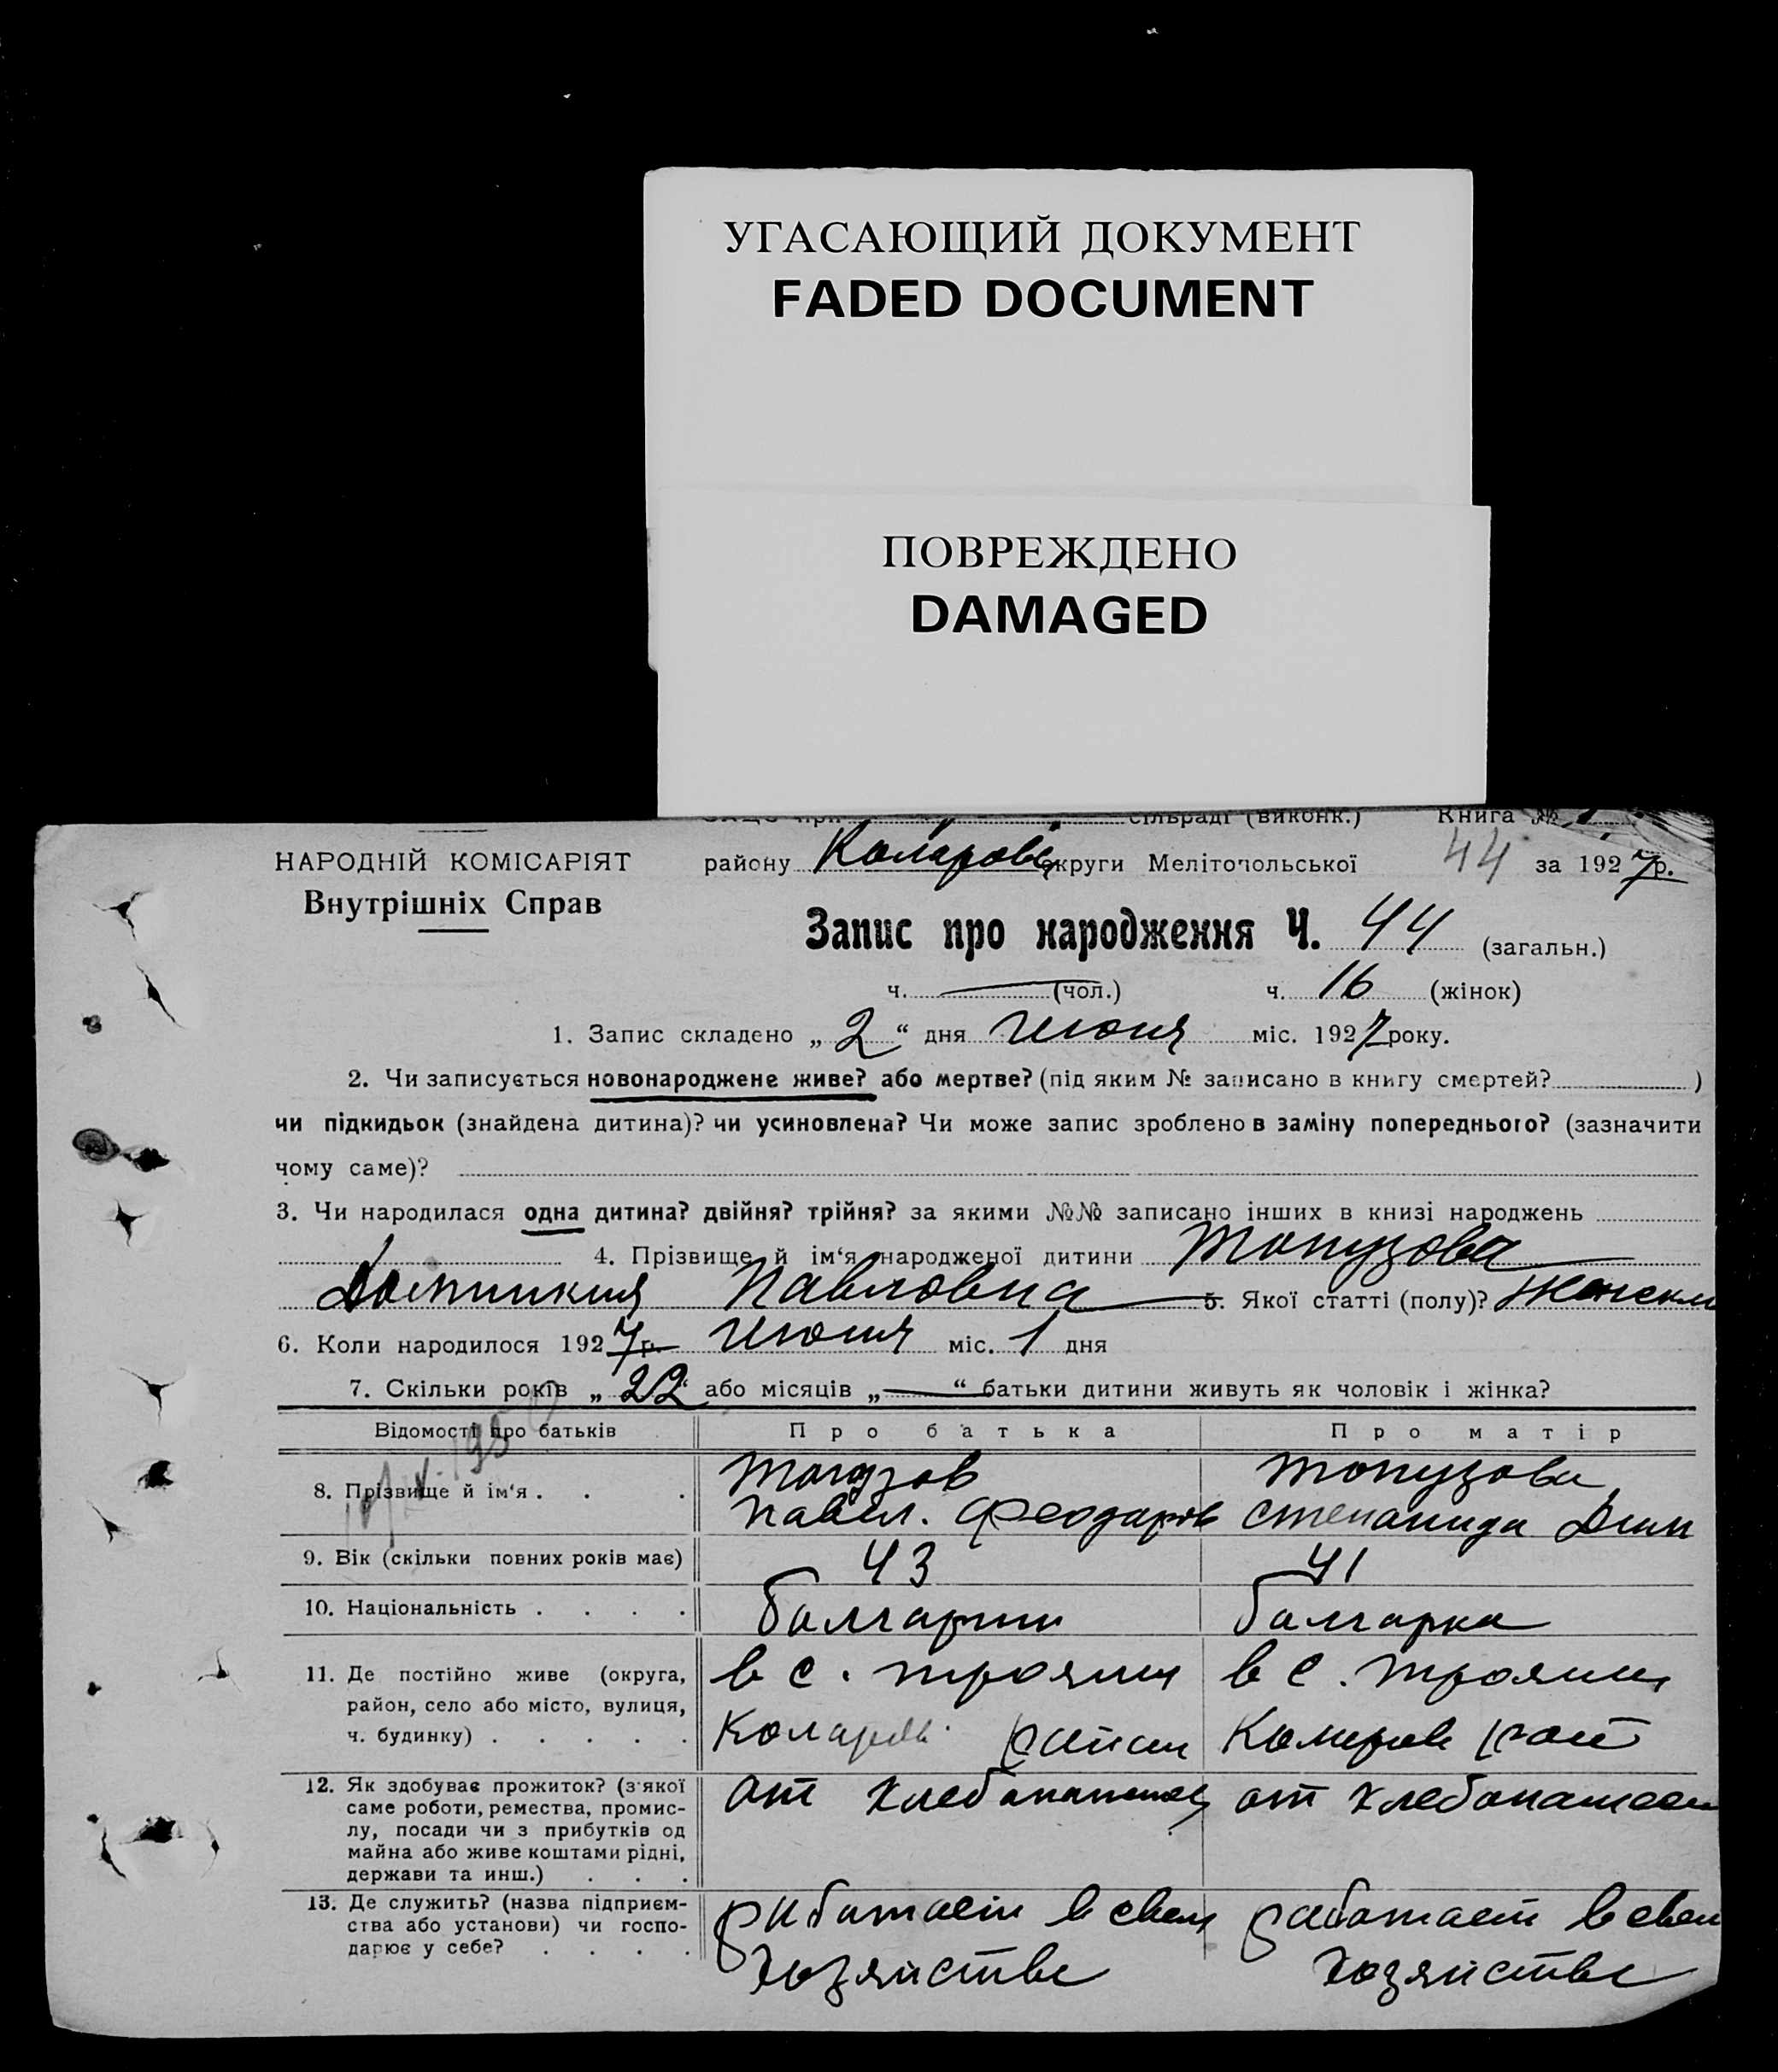 УГАСАЮЩИЙ ДОКУМЕНТ
FADED DOCUMENT
ПОВРЕЖДЕНО
DAMAGED
при сільраді (виконк.) Книга №
НАРОДНІЙ КОМІСАРІЯТ району Коларовс округи Мелітопольської 44 за 1927р.
Внутрішніх Справ
Запис про народження Ч. 44 (загальн.)
ч. (чол.) ч. 16 (жінок)
1. Запис складено „2“ дня Июня міс. 1927 року.
2. Чи записується новонароджене живе? або мертве? (під яким № записано в книгу смертей? )
чи підкидьок (знайдена дитина)? чи усиновлена? Чи може запис зроблено в заміну попереднього? (зазначити
чому саме)?
3. Чи народилася одна дитина? двійня? трійня? за якими №№ записано інших в книзі народжень
4. Прізвище й ім‘я народженої дитини Топузова
Домникия Павловна 5. Якої статті (полу)? Женски
6. Коли народилося 1927р. Июня міс. 1 дня
7. Скільки років „22“ або місяців „—“ батьки дитини живуть як чоловік і жінка?
Відомості про батьків Про батька Про матір
8. Прізвище й ім‘я . . . Топузов Топузова
Павел. Феодоров Степанида Дим
9. Вік (скільки повних років має) 43 41
10. Національність . . . . болгарин болгарка
11. Де постійно живе (округа, в с. Трояни в с. Трояни
район, село або місто, вулиця,
ч. будинку) . . . . . Коларов. район Коларов рай
12. Як здобуває прожиток? (з якої от хлебопашес от хлебопашест
саме роботи, ремества, промис-
лу, посади чи з прибутків од
майна або живе коштами рідні,
держави та инш.) . . .
13. Де служить? (назва підприєм- работает в своем работает в своем
ства або установи) чи госпо-
дарює у себе? . . . . хозяйстве хозяйстве